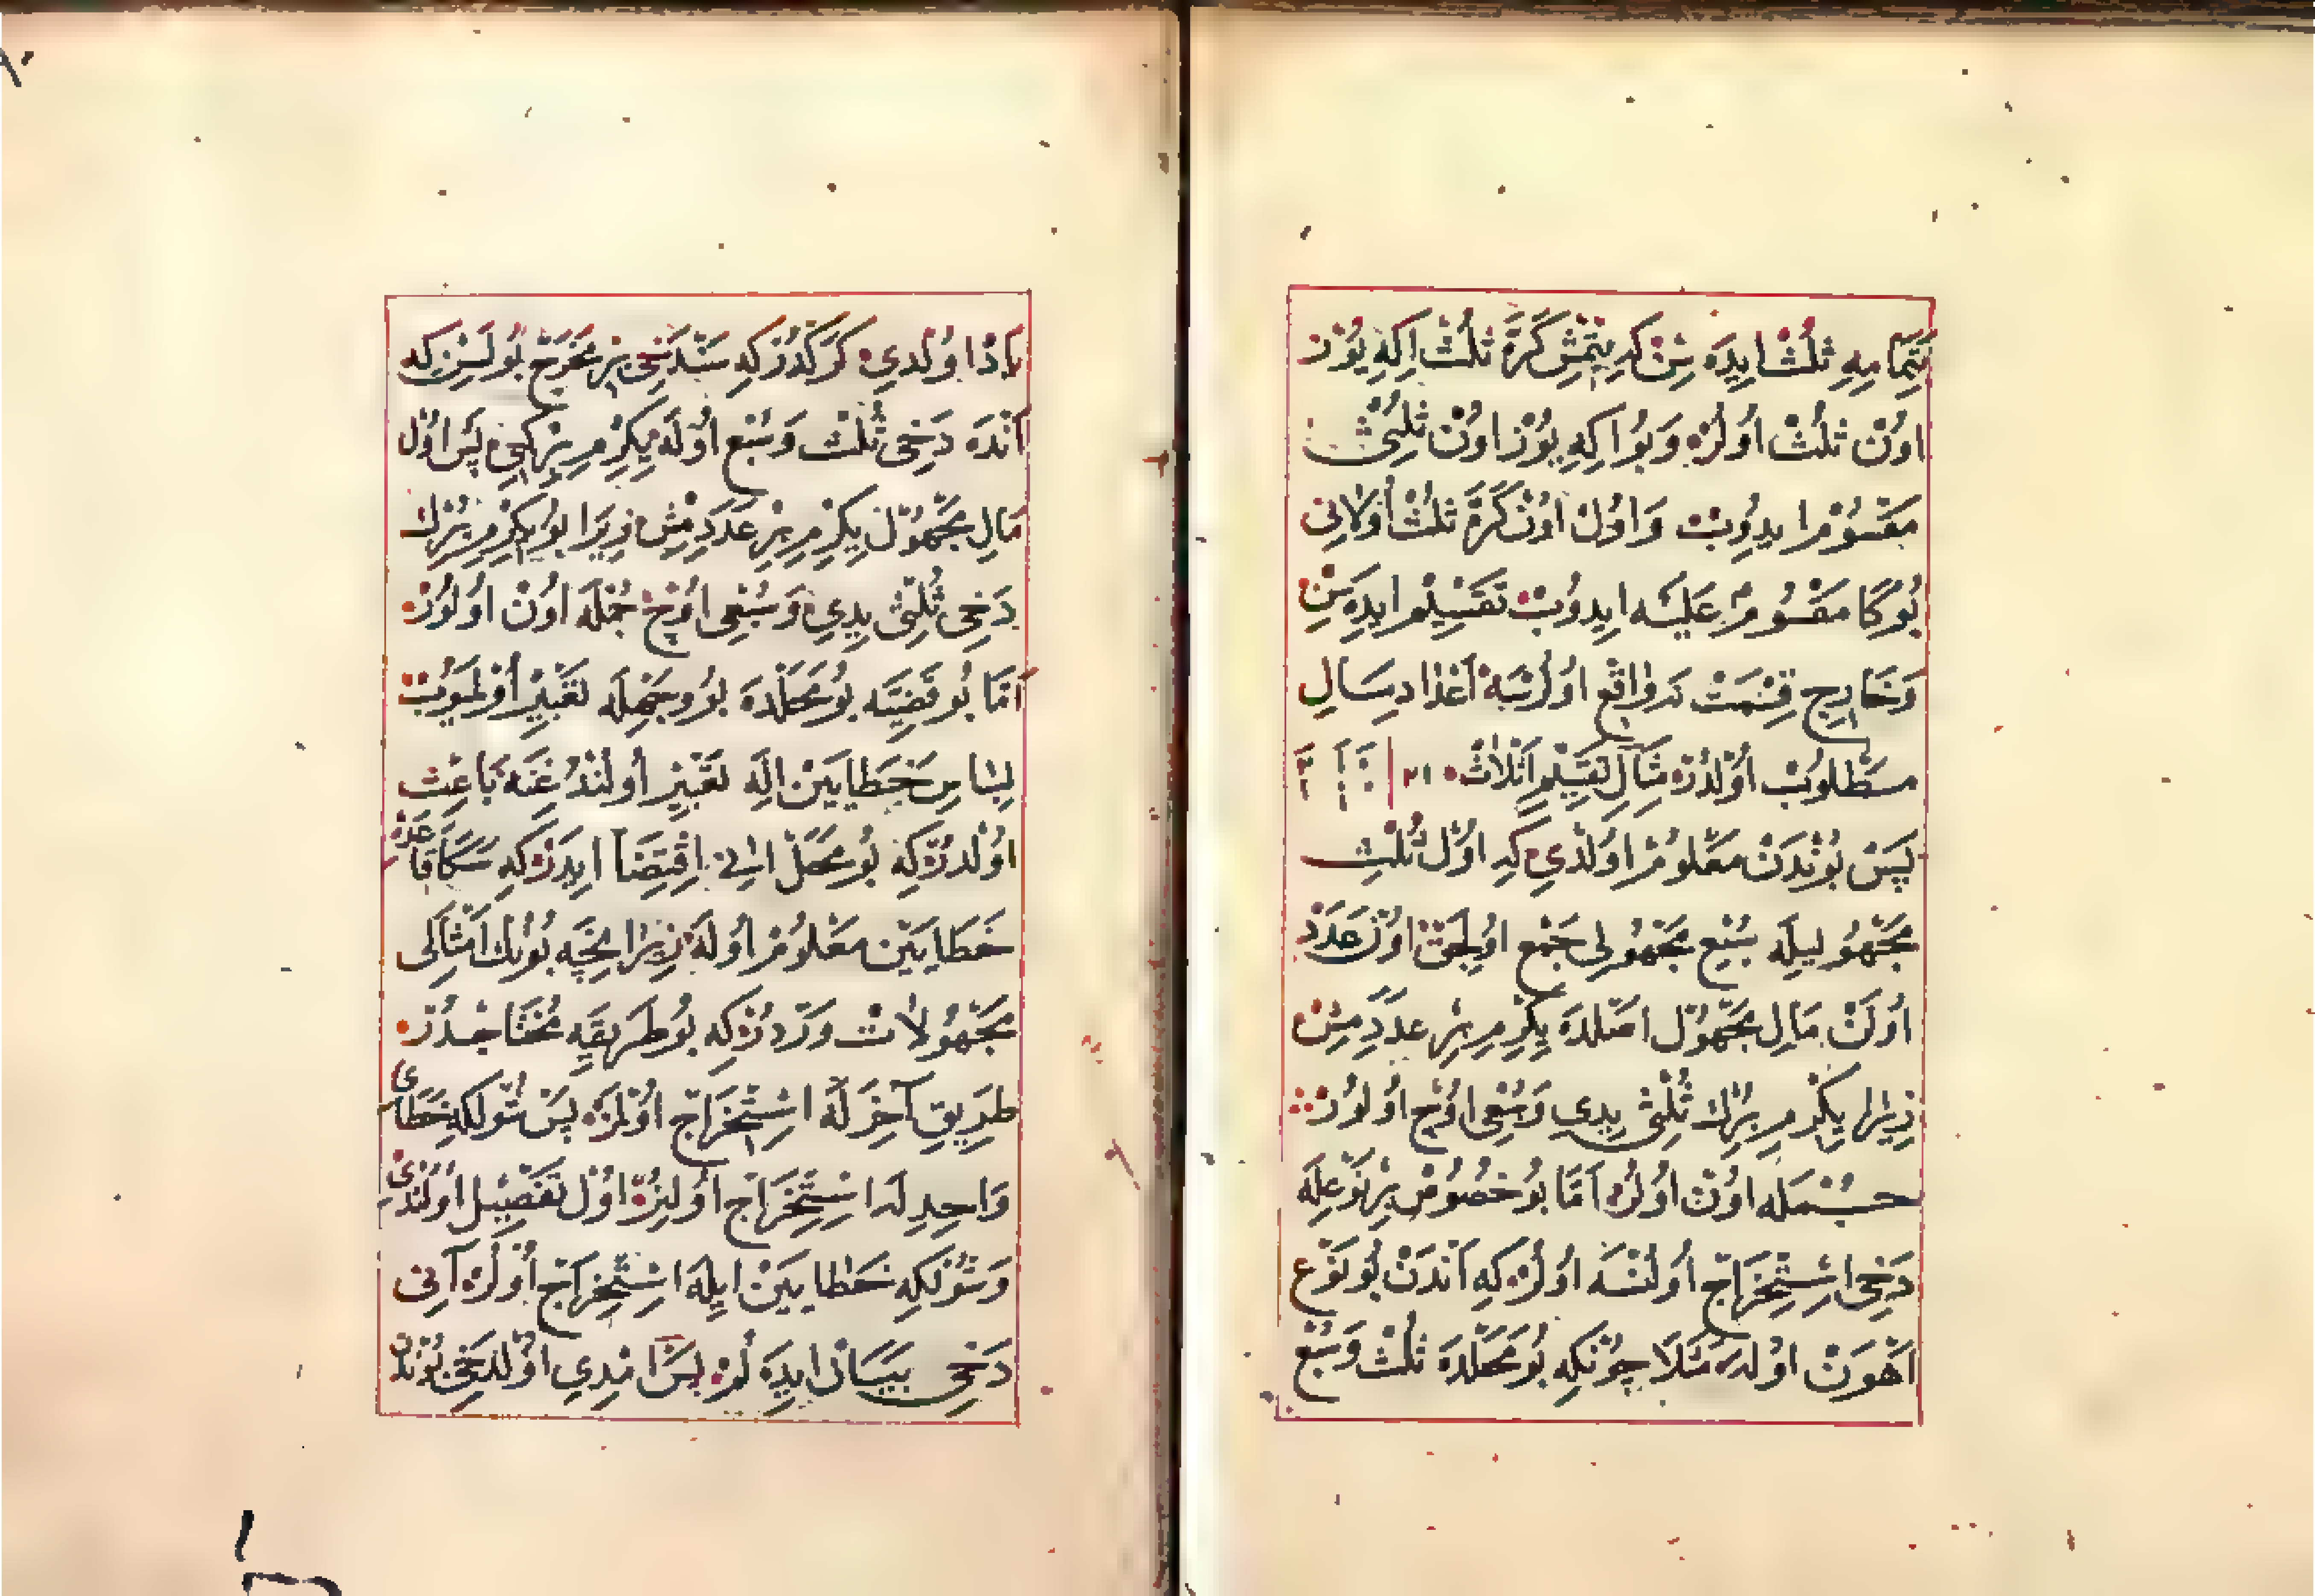 تمامه ثلث ایده سن که یتمش کره ثلث ایکه یوز
اون ثلث اولر و بو ایکه یوز اون ثلثی
مقسوم ایدوب و اول اون کره ثلث اولانی
بوکا مقسوم علیه ایدوب تقسیم ایده سن
و خارج قسمت نه واقع اولرسه اعداد سال
مطلوب اولدر مثال تقسیم اثلاث ٢١
پس بوندن معلوم اولدی که اول ثلث
مجهولیله سبع مجهولی جمع اولیجق اون عدد
اولن مال مجهول اصلده یکرمی بر عدد مش
زیرا یکرمی برک ثلثی یدی و سبعی اوچ اولور
جمله اون اولر اما بو خصوص بر نوعله
دخی استخراج اولنسه اولر که اندن بو نوع
اهون اولر مثلا چونکه بو محلده ثلث و سبع
یاد اولدی کرکدر که سند دخی بر مخرج بولسن که
انده دخی ثلث و سبع اوله یکرمی بر کبی پس اول
مال مجهول یکرمی بر عدد مش زیرا بو یکرمی برک
دخی ثلثی یدی و سبعی اوچ جمله اون اولور
اما بو قضیه بو محلده بو وجهله تعبیر اولمیوب
لباس خطایین اله تعبیر اولندوغنه باعث
اولدر که بو محل انی اقتضا ایدر که سکا قاعده
خطایین معلوم اوله زیرا نیجه بونک امثالی
مجهولات وردر که بو طریقه محتاجدر
طریق آخرله استخراج اولمز پس شولکه خطای
واحدله استخراج اولنر اول تفصیل اولندی
و شولکه خطایین ایله استخراج اولر آنی
دخی بیان ایده لر پس ایمدی اولدخی بوندن